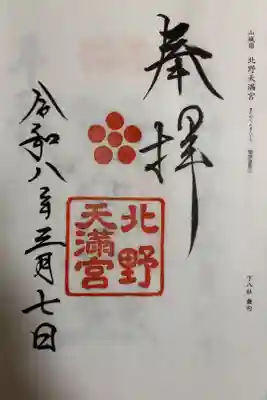 山城国 北野天満宮
奉拝
北野
天満宮
令和八年三月七日